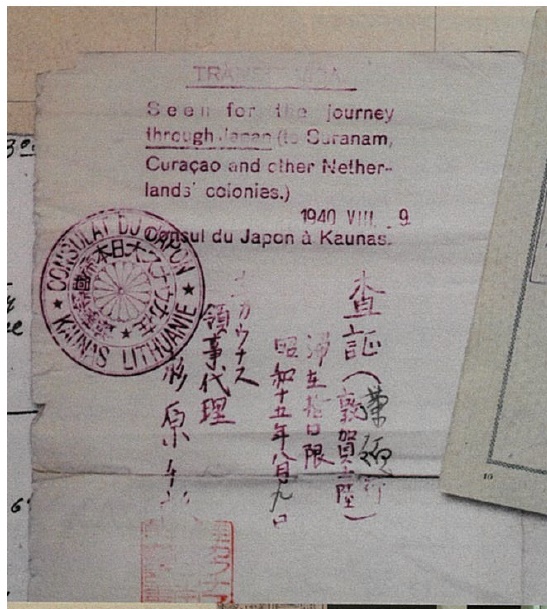 TRANSIT VISA.
Seen for the journey
through Japan (to Suranam,
Curaçao and other Nether-
lands' colonies.)
1940 VIII. 9
Consul du Japon à Kaunas.
CONSULAT DU JAPON
KAUNAS LITHUANIE
査証
(敦賀上陸)
滞在拾日限
昭和十五年八月九日
カウナス
領事代理
杉原